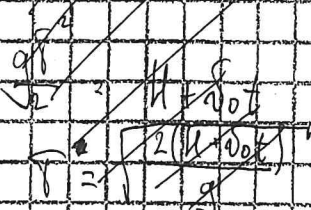 gT²
2
H + v₀t
T = √(2(H + v₀t)
g